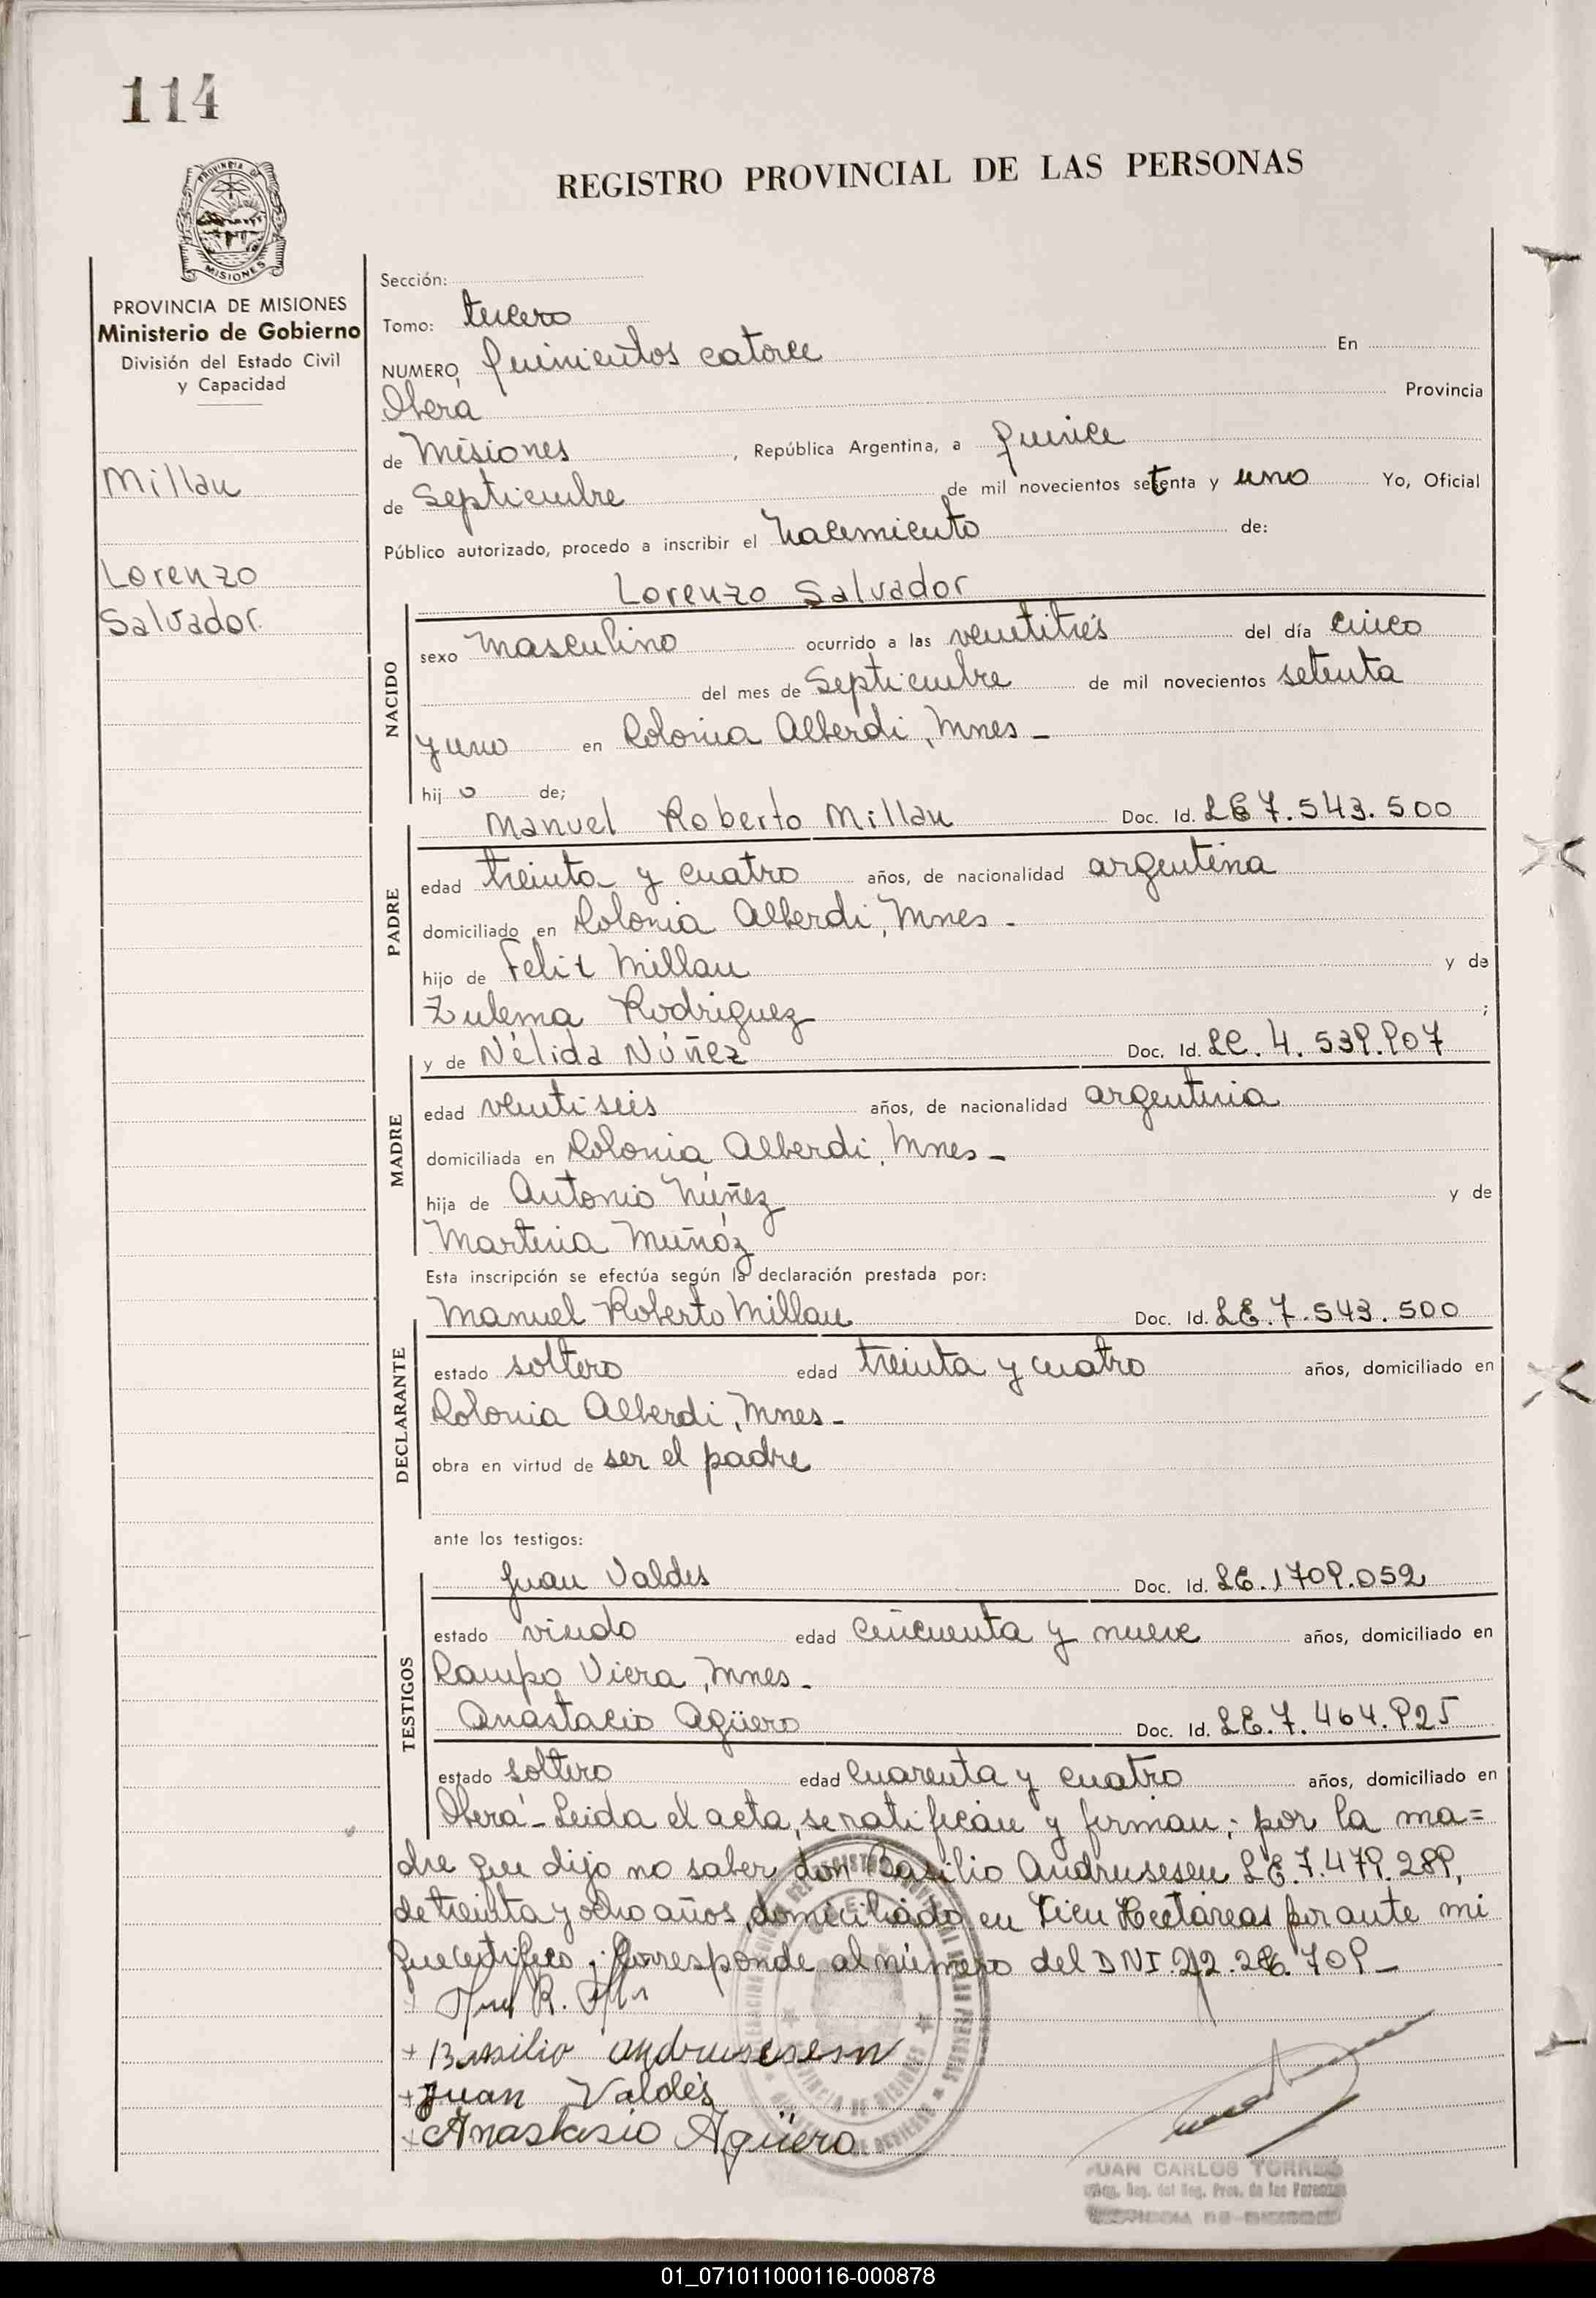 114
REGISTRO PROVINCIAL DE LAS PERSONAS
PROVINCIA DE
MISIONES
PROVINCIA DE MISIONES
Ministerio de Gobierno
División del Estado Civil
y Capacidad
Millan
Lorenzo
Salvador
Sección:
Tomo: tercero
NUMERO, Quinientos catorce En
Oberá Provincia
de Misiones, República Argentina, a quince
de Septiembre de mil novecientos setenta y uno Yo, Oficial
Público autorizado, procedo a inscribir el nacimiento de:
Lorenzo Salvador
NACIDO
sexo masculino ocurrido a las veintitrés del día cinco
del mes de Septiembre de mil novecientos setenta
y uno en Colonia Alberdi, Mnes -
hijo de;
Manuel Roberto Millan Doc. Id. LE 7.543.500
PADRE
edad treinta y cuatro años, de nacionalidad argentina
domiciliado en Colonia Alberdi, Mnes -
hijo de Felix Millan y de
Zulema Rodriguez ;
y de Nélida Núñez Doc. Id. LC. 4.539.907
MADRE
edad veintiseis años, de nacionalidad argentina
domiciliada en Colonia Alberdi, Mnes -
hija de Antonio Núñez y de
Martina Muñóz
Esta inscripción se efectúa según la declaración prestada por:
Manuel Roberto Millan Doc. Id. LE.7.543.500
DECLARANTE
estado soltero edad treinta y cuatro años, domiciliado en
Colonia Alberdi, Mnes -
obra en virtud de ser el padre
ante los testigos:
Juan Valdes Doc. Id. LE.1709.052
TESTIGOS
estado viudo edad cincuenta y nueve años, domiciliado en
Campo Viera, Mnes -
Anastacio Agüero Doc. Id. LE.7.464.925
estado soltero edad cuarenta y cuatro años, domiciliado en
Oberá - Leida el acta, se ratifican y firman; por la ma=
dre que dijo no saber don Basilio Andrusesen LE.7.479.289,
de treinta y ocho años, domiciliado en Cien Hectáreas por ante mi
que certifico. Corresponde al número del DNI. 709 -
+ R.
+ Basilio Andrusesesn
+ Juan Valdés
+ Anastasio Agüero
PROVINCIA DE MISIONES
JUAN CARLOS TORRES
del Reg. Prov. de las Personas
01_071011000116-000878